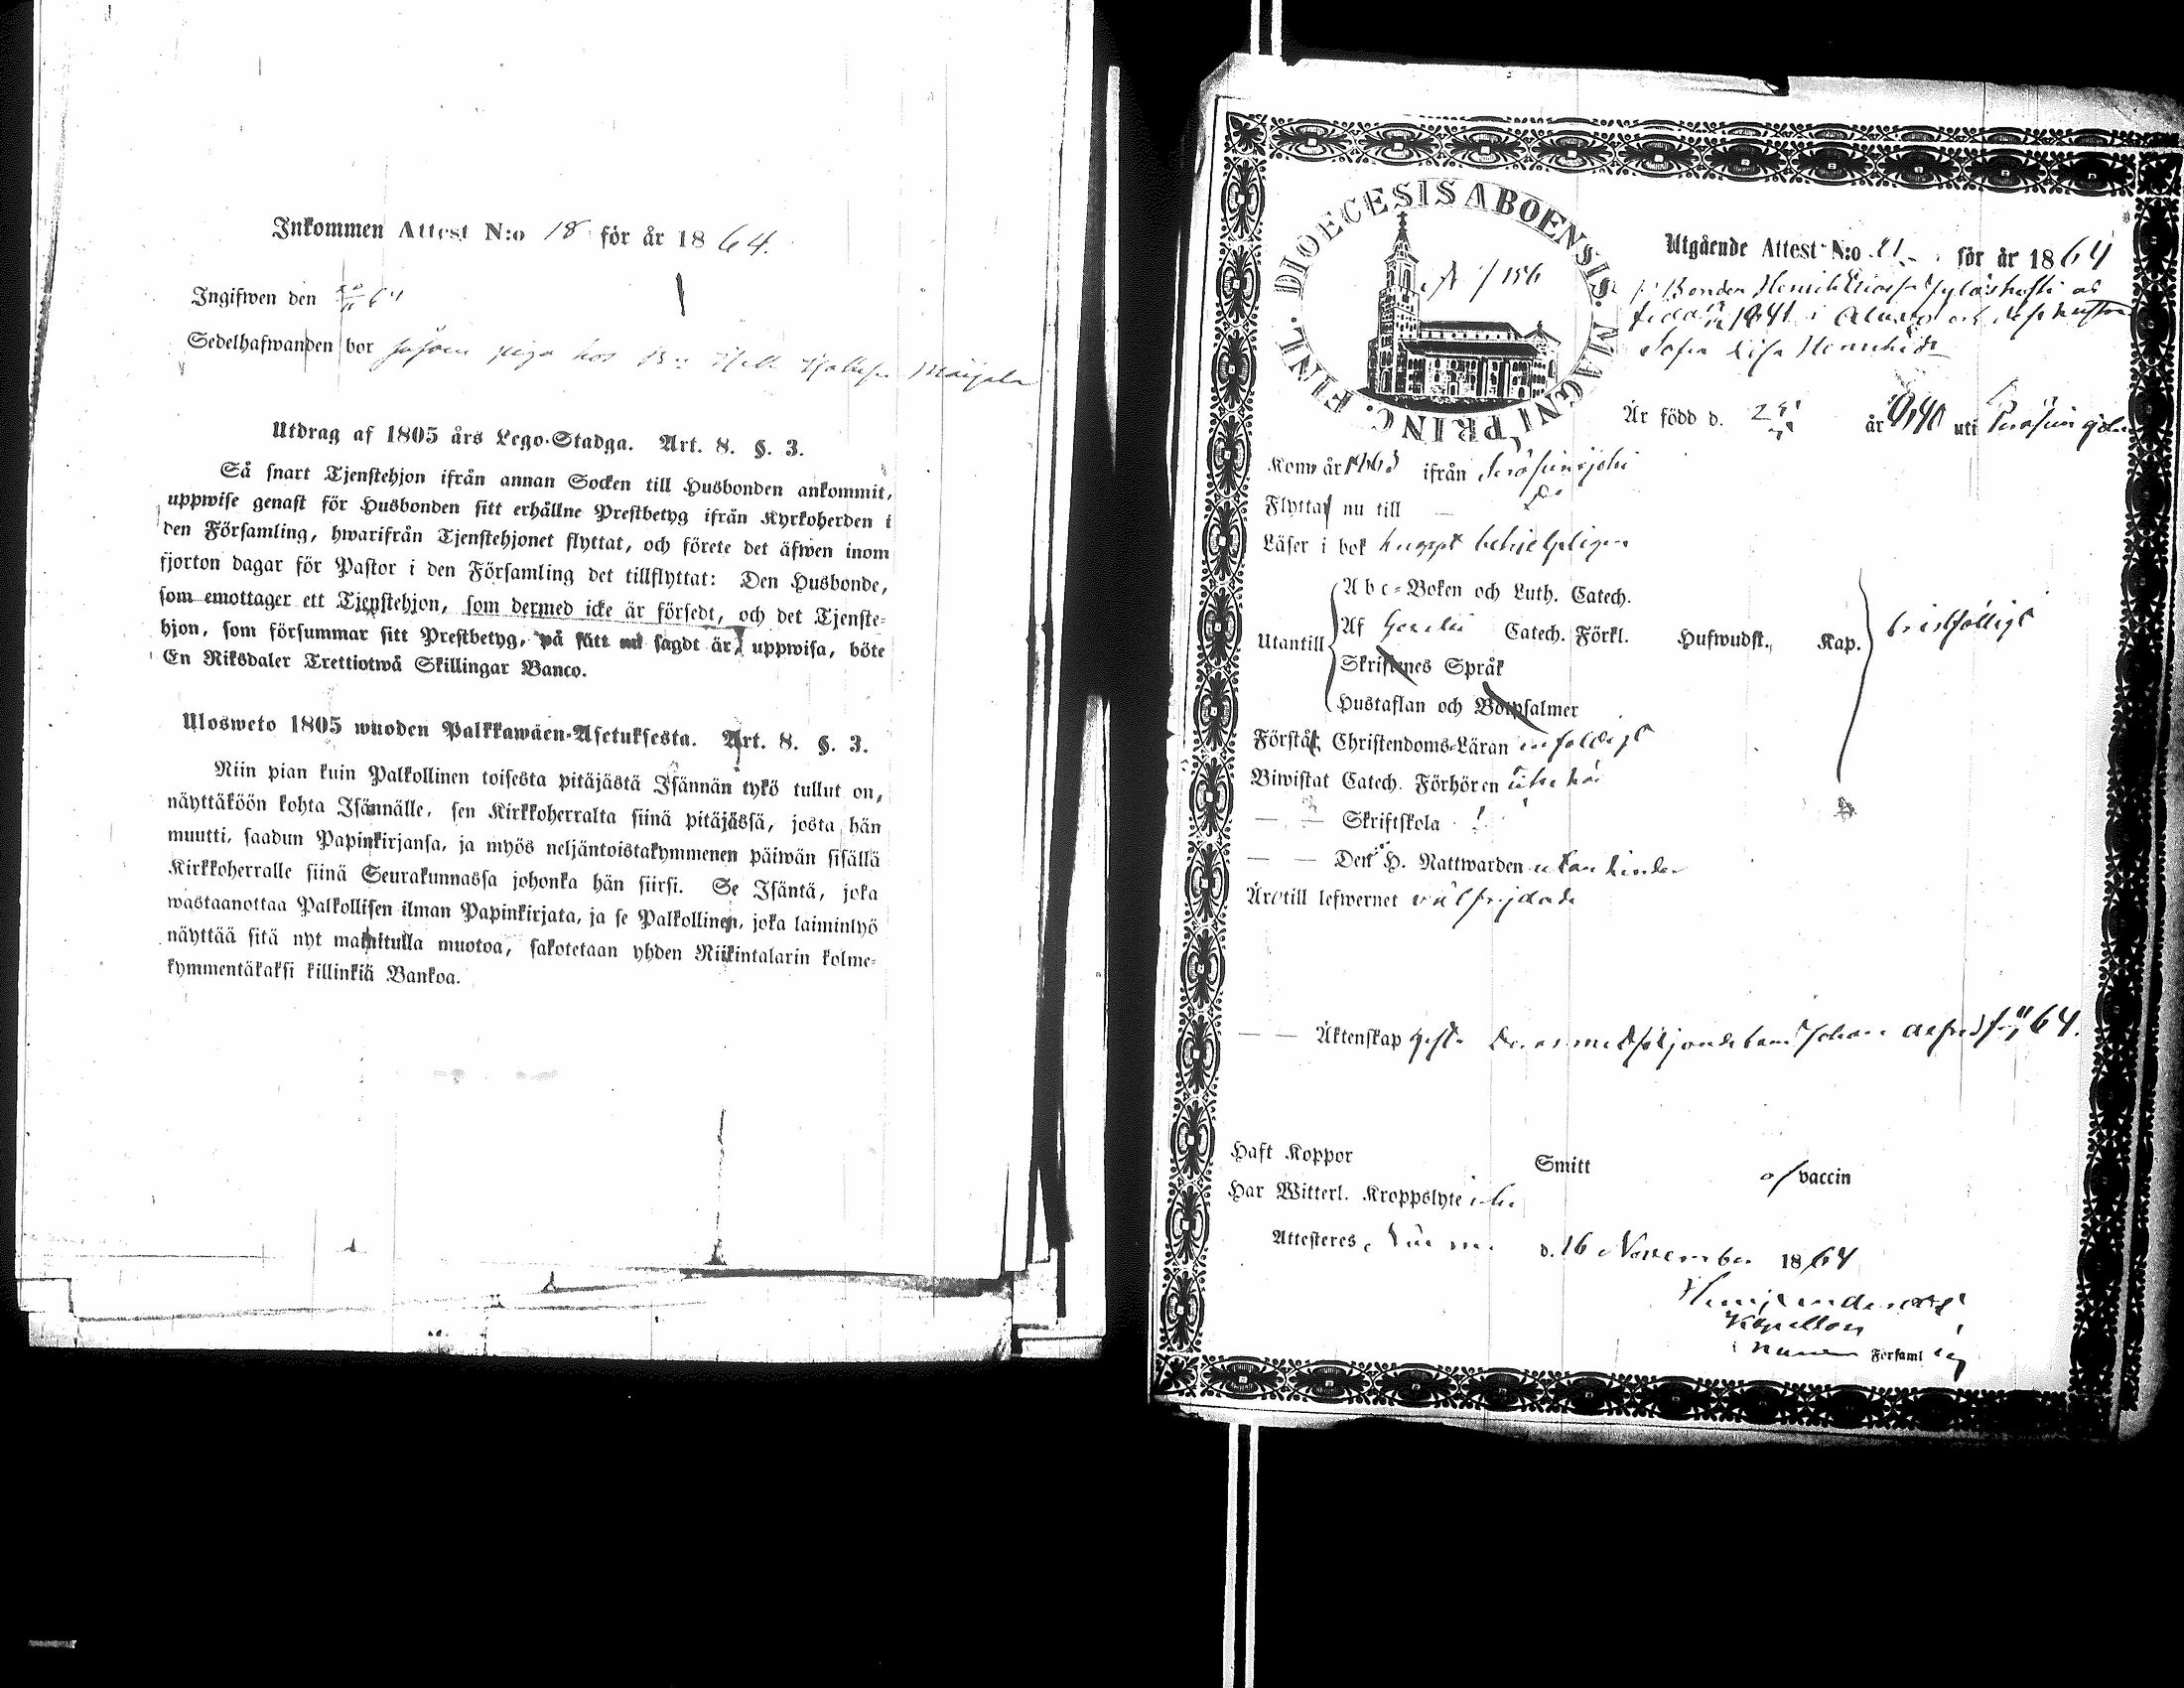 Inkommen Attest N:o 18 för år 1864.
Ingifwen den 64
Sedelhafwanden bor såsom piga hos
Utdrag af 1805 års Lego-Stadga. Art. 8. §. 3.
Så snart Tjenstehjon ifrån annan Socken till Husbonden ankommit,
uppwise genast för Husbonden sitt erhållne Prestbetyg ifrån Kyrkoherden i
den Församling, hwarifrån Tjenstehjonet flyttat, och förete det äfwen inom
fjorton dagar för Pastor i den Församling det tillflyttat: Den Husbonde,
som emottager ett Tjenstehjon, som dermed icke är försedt, och det Tjenste-
hjon, som försummar sitt Prestbetyg, på sätt nu sagdt är, uppwisa, böte
En Riksdaler Trettiotwå Skillingar Banco.
Ulosweto 1805 wuoden Palkkawäen-Asetuksesta. Art. 8. §. 3.
Niin pian kuin Palkollinen toisesta pitäjästä Isännän tykö tullut on,
näyttäköön kohta Isännälle, sen Kirkkoherralta siinä pitäjässä, josta hän
muutti, saadun Papinkirjansa, ja myös neljäntoistakymmenen päiwän sisällä
Kirkkoherralle siinä Seurakunnassa johonka hän siirsi. Se Isäntä, joka
wastaanottaa Palkollisen ilman Papinkirjata, ja se Palkollinen, joka laiminlyö
näyttää sitä nyt mainitulla muotoa, sakotetaan yhden Riikintalarin kolme-
kymmentäkaksi killinkiä Bankoa.
DIOECESIS ABOENSIS. MAGNI PRINC. FINL.
156
Utgående Attest N:o 21 för år 1864
Bonden Henrik
född 1841 i Alavo och dess hustru
Sofia Lisa Henriksdr
Är född d. år 1840 uti Peräseinäjoki
Kom år 1863 ifrån Peräseinäjoki
Flyttar nu till do
Läser i bok knappt behjelpligen
Utantill
Abc-Boken och Luth. Catech.
Af Gezelii Catech. Förkl. Hufwudst., Kap. bristfälligt
Skriftenes Språk
Hustaflan och Botpsalmer
Förstår Christendoms-Läran enfaldigt
Biwistat Catech. Förhören icke här
— — Skriftskola
— — Den H. Nattwarden utan hinder
Äro till lefwernet välfrejdade
— — Äktenskap gifta Deras medföljande barn Johan Alfred 64.
Haft Koppor Smitt vaccin
Har Witterl. Kroppslyte icke
Attesteres, d. 16 November 1864
Kapellan
i Församling